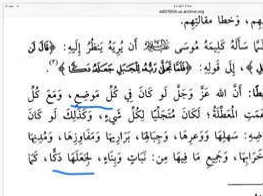 هم، وخطأ مقالتهم.
لما سأله كليمه موسى عليه السلام أن يريه ينظر إليه: ﴿قال لن
﴾، إلى قوله: ﴿فلما تجلى ربه للجبل جعله دكا﴾(٣).
أن الله عز وجل لو كان في كل موضع، ومع كل
المعطلة؛ لكان متجليا لكل شيء، وكذلك لو كان
سهلها ووعرها، وجبالها، براريها ومفاوزها، ومدنها
خرابها، وجميع ما فيها من: نبات وبناء، لجعلها دكا، كما